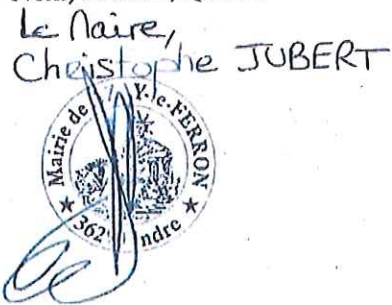 Le Maire,
Christophe JUBERT
Mairie de
Y-le-FERRON
362
ndre